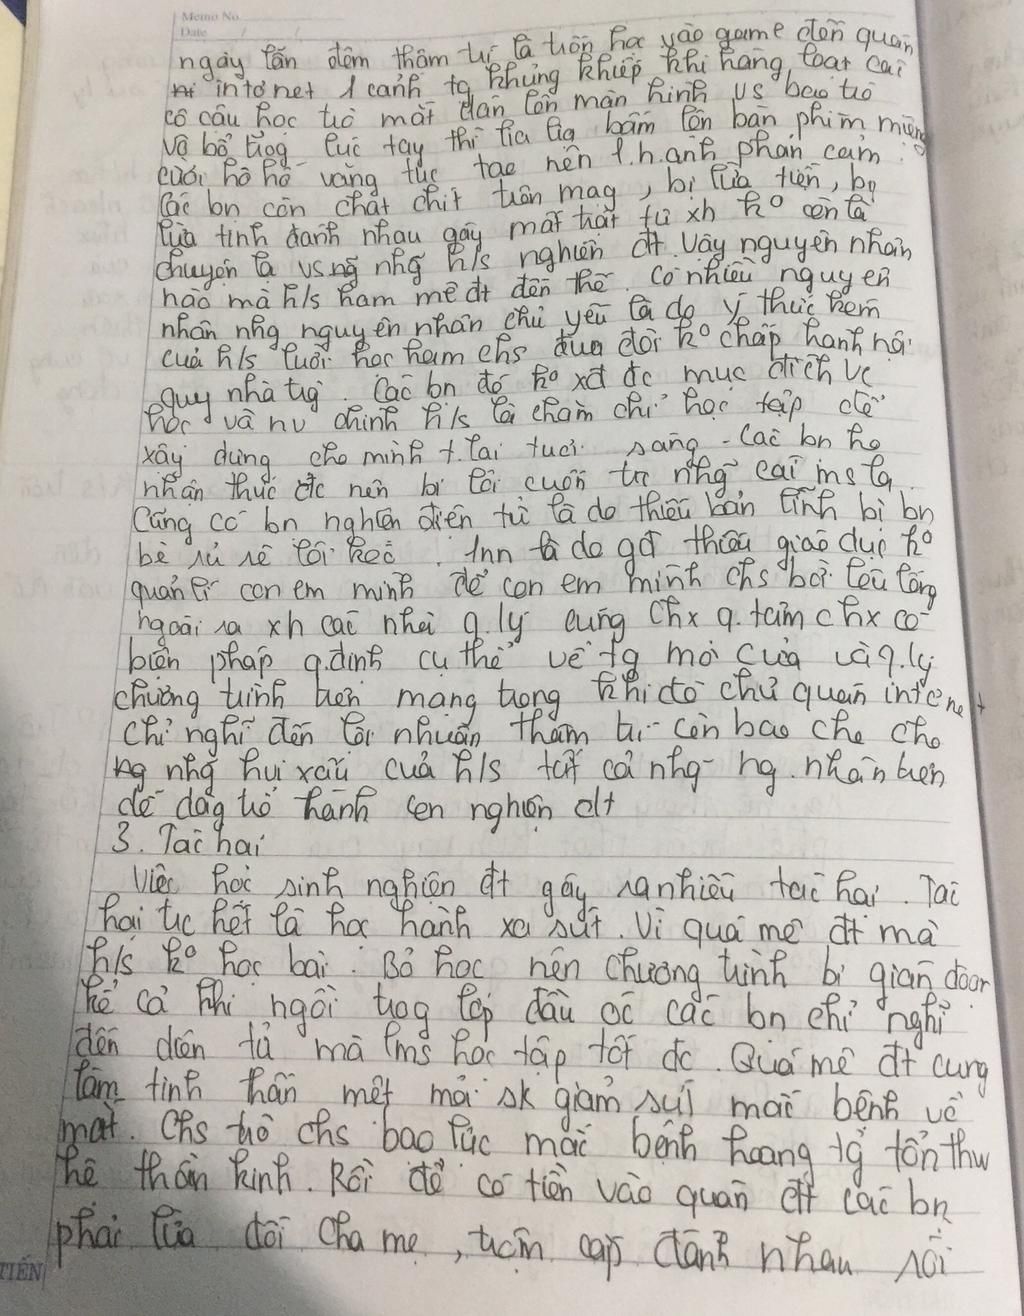 Memo No.
Date / /
ngày lẫn đêm thậm trí là trốn học vào game đến quán
intơnet 1 cảnh tg khủng khiếp khi hàng loạt các
cô cậu học trò mắt dán lên màn hình vs bao trò
vô bổ trog lúc tay thì lia lịa bấm lên bàn phím miệng
cười hô hố văng tục tạo nên 1 h.ảnh phản cảm.
Các bn còn chát chít trên mạg, bị lừa tiền, bị
lừa tình đánh nhau gây mất trật tự xh ko còn là
chuyện lạ vs nhg h/s nghiện đt. Vậy nguyên nhân
nào mà h/s ham mê đt đến thế. Có nhiều nguyên
nhân nhg nguyên nhân chủ yếu là do ý thức kém
của h/s lười học ham chs đua đòi ko chấp hành nội
quy nhà trg. Các bn đó ko xđ đc mục đích vc
học và nv chính h/s là chăm chỉ học tập để
xây dựng cho mình t.lai tươi sáng - Các bn ko
nhận thức đc nên bị lôi cuốn tr nhg cái ms lạ.
Cũng có bn nghiện điện tử là do thiếu bản lĩnh bị bn
bè rủ rê lôi kéo. 1nn là do gđ thiếu giáo dục ko
quản lí con em mình để con em mình chs bời lêu lổng
ngoài ra xh các nhà q.lý cũng chx q.tâm chx có
biện pháp q.định cụ thể về tg mở cửa và q.lý
chương trình trên mạng trong khi đó chủ quán intenet
chỉ nghĩ đến lợi nhuận thậm trí còn bao che cho
nhg hvi xấu của h/s tất cả nhg ng.nhân trên
để dag trở thành cen nghiện đt
3. Tác hại
Việc học sinh nghiện đt gây ra nhiều tác hại. Tác
hại tc hết là học hành xa sút. Vì quá mê đt mà
h/s ko học bài. Bỏ học nên chương trình bị gián đoạn
kể cả khi ngồi trog lớp đầu óc các bn chỉ nghĩ
đến điện tử mà lms học tập tốt đc. Quá mê đt cũng
làm tinh thần mệt mỏi sk giảm sút mắc bệnh về
mắt. Chs trò chs bạo lực mắc bệnh hoang tg tổn thw
hệ thần kinh. Rồi để có tiền vào quán đt các bn
phải lừa dối cha mẹ, trộm cắp đánh nhau rồi
TIẾN